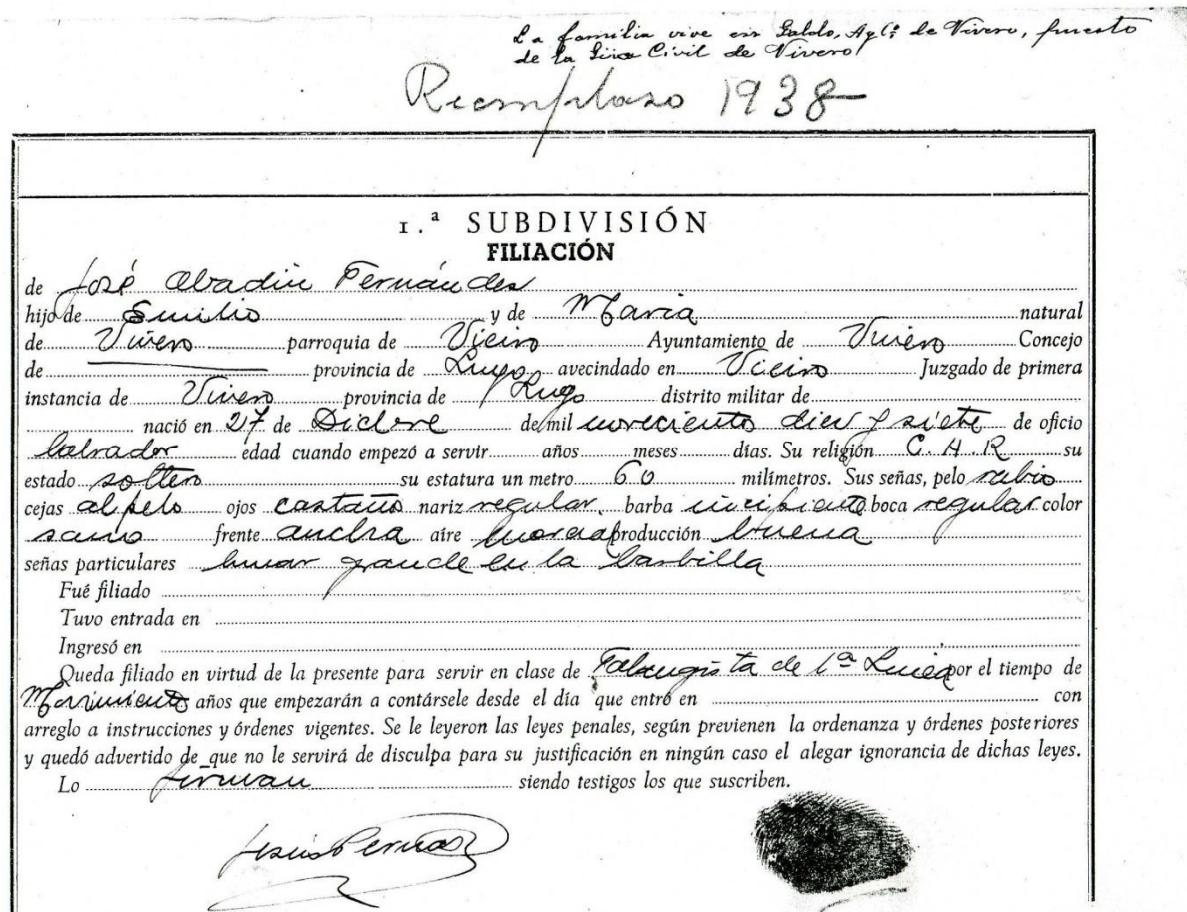 La familia vive en Galdo, Aytº de Vivero, puesto
de la Civil de Vivero
Reemplazo 1938
1.ª SUBDIVISIÓN
FILIACIÓN
de José Abadin Fernández
hijo de Emilio y de Maria natural
de Vivero parroquia de Vieiro Ayuntamiento de Vivero Concejo
de provincia de Lugo avecindado en Vieiro Juzgado de primera
instancia de Vivero provincia de Lugo distrito militar de
nació en 27 de Dicbre de mil noveciento diez y siete de oficio
labrador edad cuando empezó a servir años meses días. Su religión C. A. R su
estado soltero su estatura un metro 60 milímetros. Sus señas, pelo rubio
cejas al pelo ojos castaño nariz regular. barba incipiente boca regular color
sano frente ancha aire marcial producción buena
señas particulares lunar grande en la barbilla
Fué filiado
Tuvo entrada en
Ingresó en
Queda filiado en virtud de la presente para servir en clase de Falangista de 1ª Linea por el tiempo de
Movimiento años que empezarán a contársele desde el día que entró en con
arreglo a instrucciones y órdenes vigentes. Se le leyeron las leyes penales, según previenen la ordenanza y órdenes posteriores
y quedó advertido de que no le servirá de disculpa para su justificación en ningún caso el alegar ignorancia de dichas leyes.
Lo firman siendo testigos los que suscriben.
Jesús Pernas